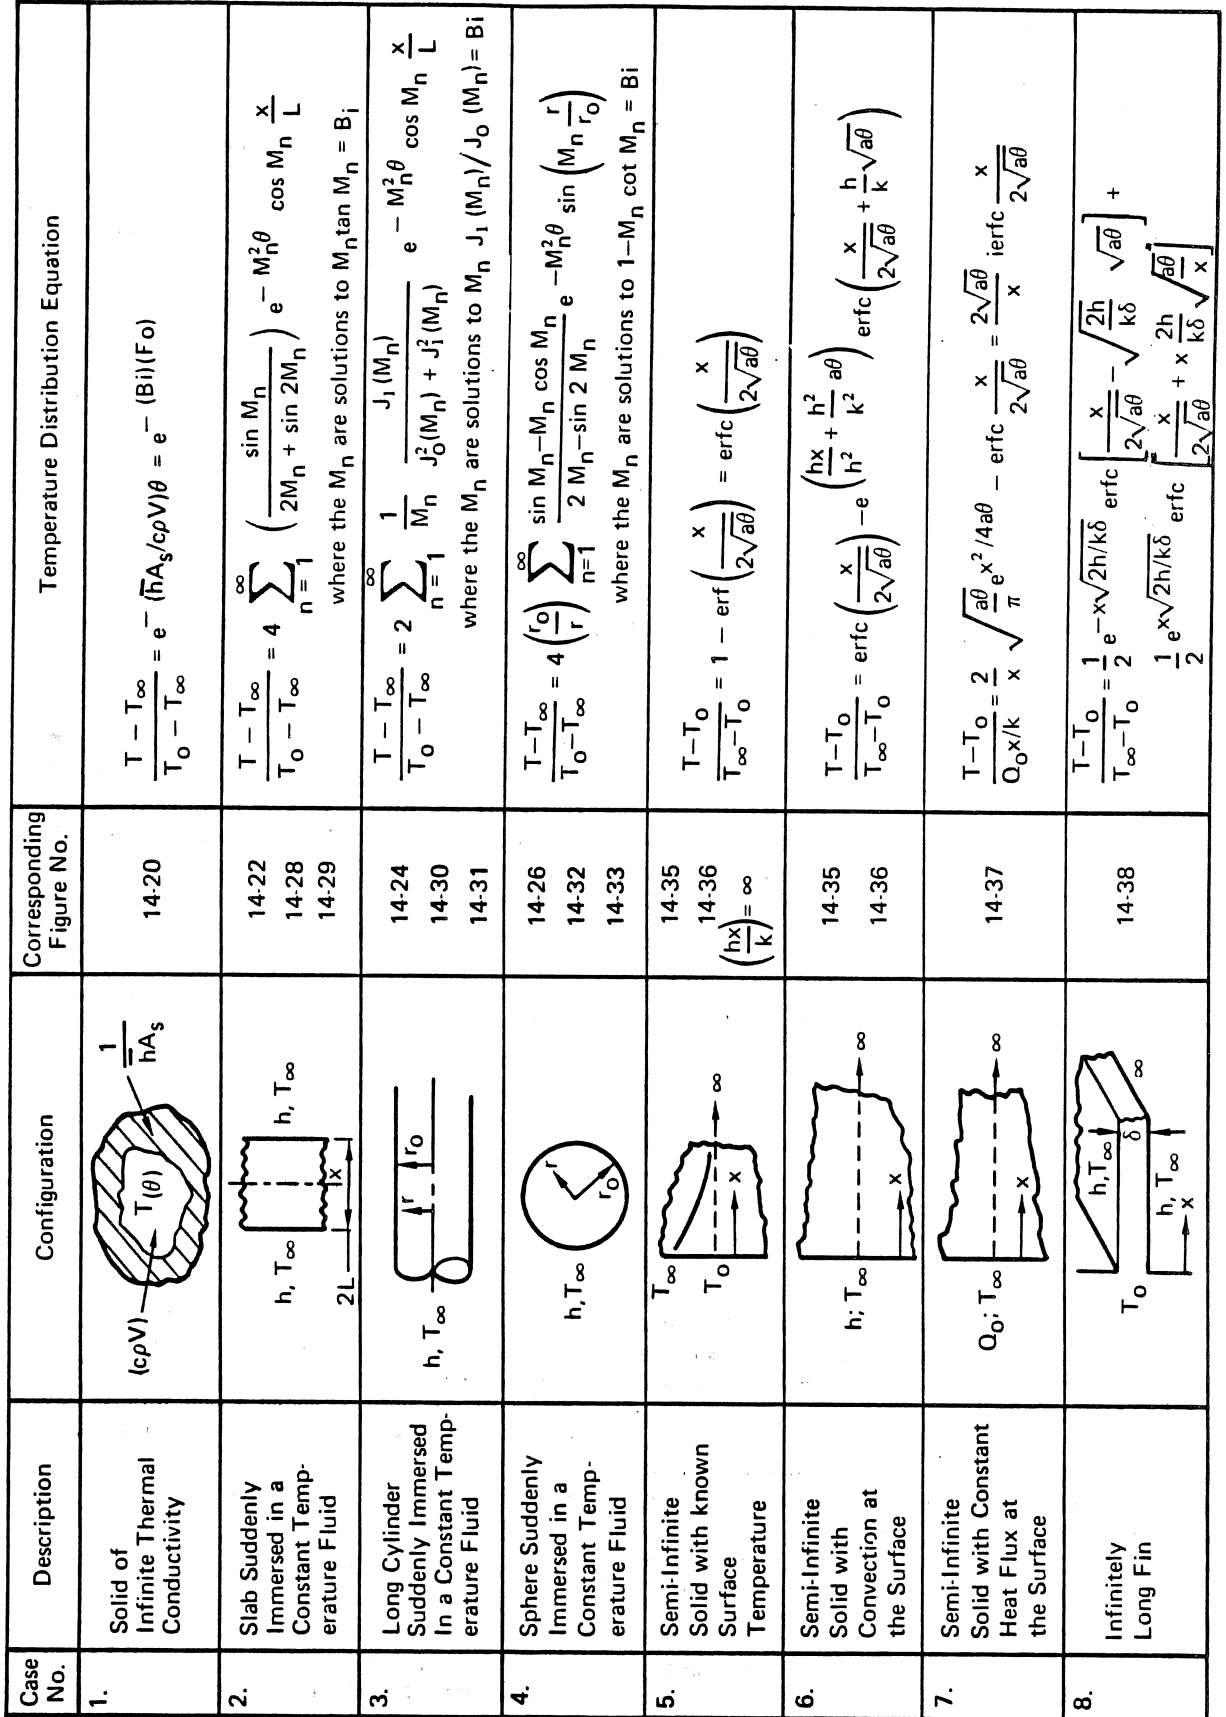 Case No.
Description
Configuration
Corresponding Figure No.
Temperature Distribution Equation
1.
Solid of
Infinite Thermal
Conductivity
(cρV)
T(θ)
1/hA_s
14-20
(T − T∞)/(T_o − T∞) = e^−(h̄A_s/cρV)θ = e^−(Bi)(Fo)
2.
Slab Suddenly
Immersed in a
Constant Temp-
erature Fluid
h, T∞
h, T∞
x
2L
14-22
14-28
14-29
(T − T∞)/(T_o − T∞) = 4 ∑_{n = 1}^∞ (sin M_n/(2M_n + sin 2M_n)) e^−M_n^2θ cos M_n x/L
where the M_n are solutions to M_n tan M_n = B_i
3.
Long Cylinder
Suddenly Immersed
In a Constant Temp-
erature Fluid
h, T∞
r
r_o
14-24
14-30
14-31
(T − T∞)/(T_o − T∞) = 2 ∑_{n = 1}^∞ 1/M_n J_1(M_n)/(J_o^2(M_n) + J_1^2(M_n)) e^−M_n^2θ cos M_n x/L
where the M_n are solutions to M_n J_1 (M_n)/J_o (M_n) = Bi
4.
Sphere Suddenly
Immersed in a
Constant Temp-
erature Fluid
h,T∞
r
r_o
14-26
14-32
14-33
(T−T∞)/(T_o−T∞) = 4 (r_o/r) ∑_{n=1}^∞ (sin M_n−M_n cos M_n)/(2 M_n−sin 2 M_n) e^−M_n^2θ sin (M_n r/r_o)
where the M_n are solutions to 1−M_n cot M_n = Bi
5.
Semi-Infinite
Solid with known
Surface
Temperature
T∞
T_o
x
∞
14-35
14-36
(hx/k) = ∞
(T−T_o)/(T∞−T_o) = 1 − erf (x/2√aθ) = erfc (x/2√aθ)
6.
Semi-Infinite
Solid with
Convection at
the Surface
h; T∞
x
∞
14-35
14-36
(T−T_o)/(T∞−T_o) = erfc (x/2√aθ) −e^(hx/h^2 + h^2/k^2 aθ) erfc (x/2√aθ + h/k √aθ)
7.
Semi-Infinite
Solid with Constant
Heat Flux at
the Surface
Q_o; T∞
x
∞
14-37
(T−T_o)/(Q_o x/k) = 2/x √(aθ/π) e^x^2/4aθ − erfc x/2√aθ = 2√aθ/x ierfc x/2√aθ
8.
Infinitely
Long Fin
T_o
h,T∞
δ
h, T∞
x
∞
14-38
(T−T_o)/(T∞−T_o) = 1/2 e^−x√2h/kδ erfc [x/2√aθ − √(2h/kδ) √aθ] +
1/2 e^x√2h/kδ erfc [x/2√aθ + x 2h/kδ √(aθ/x)]